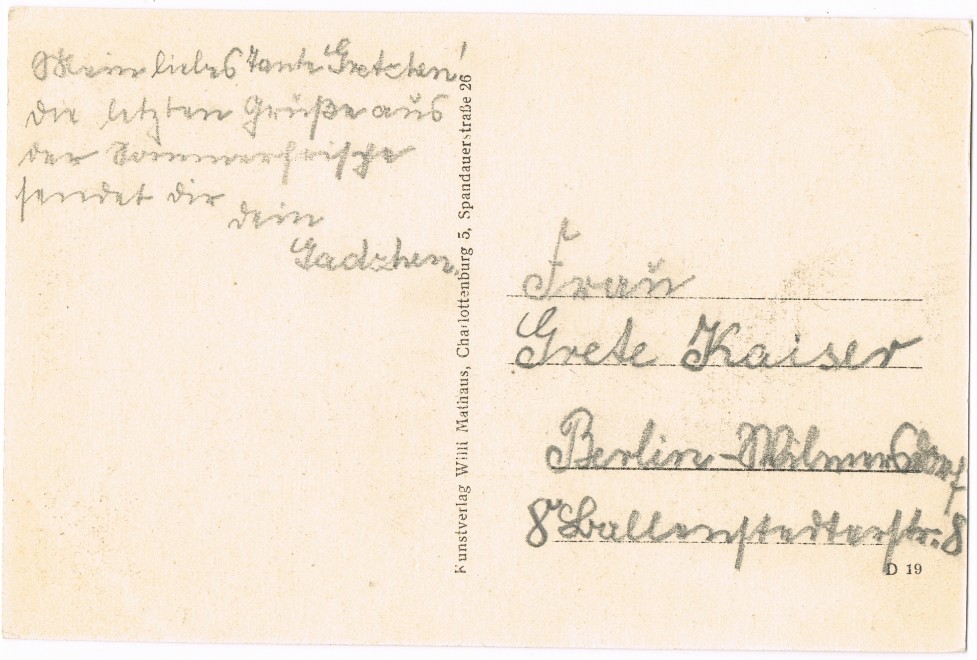 Mein liebes Tante Gretchen!
die letzten Grüße aus
der Sommerfrische
sendet dir
dein
Kunstverlag Willi Mathaus, Charlottenburg 5, Spandauerstraße 26
Frau
Grete Kaiser
Berlin-Wilmersdorf
Ballenstedterstr. 8
D 19